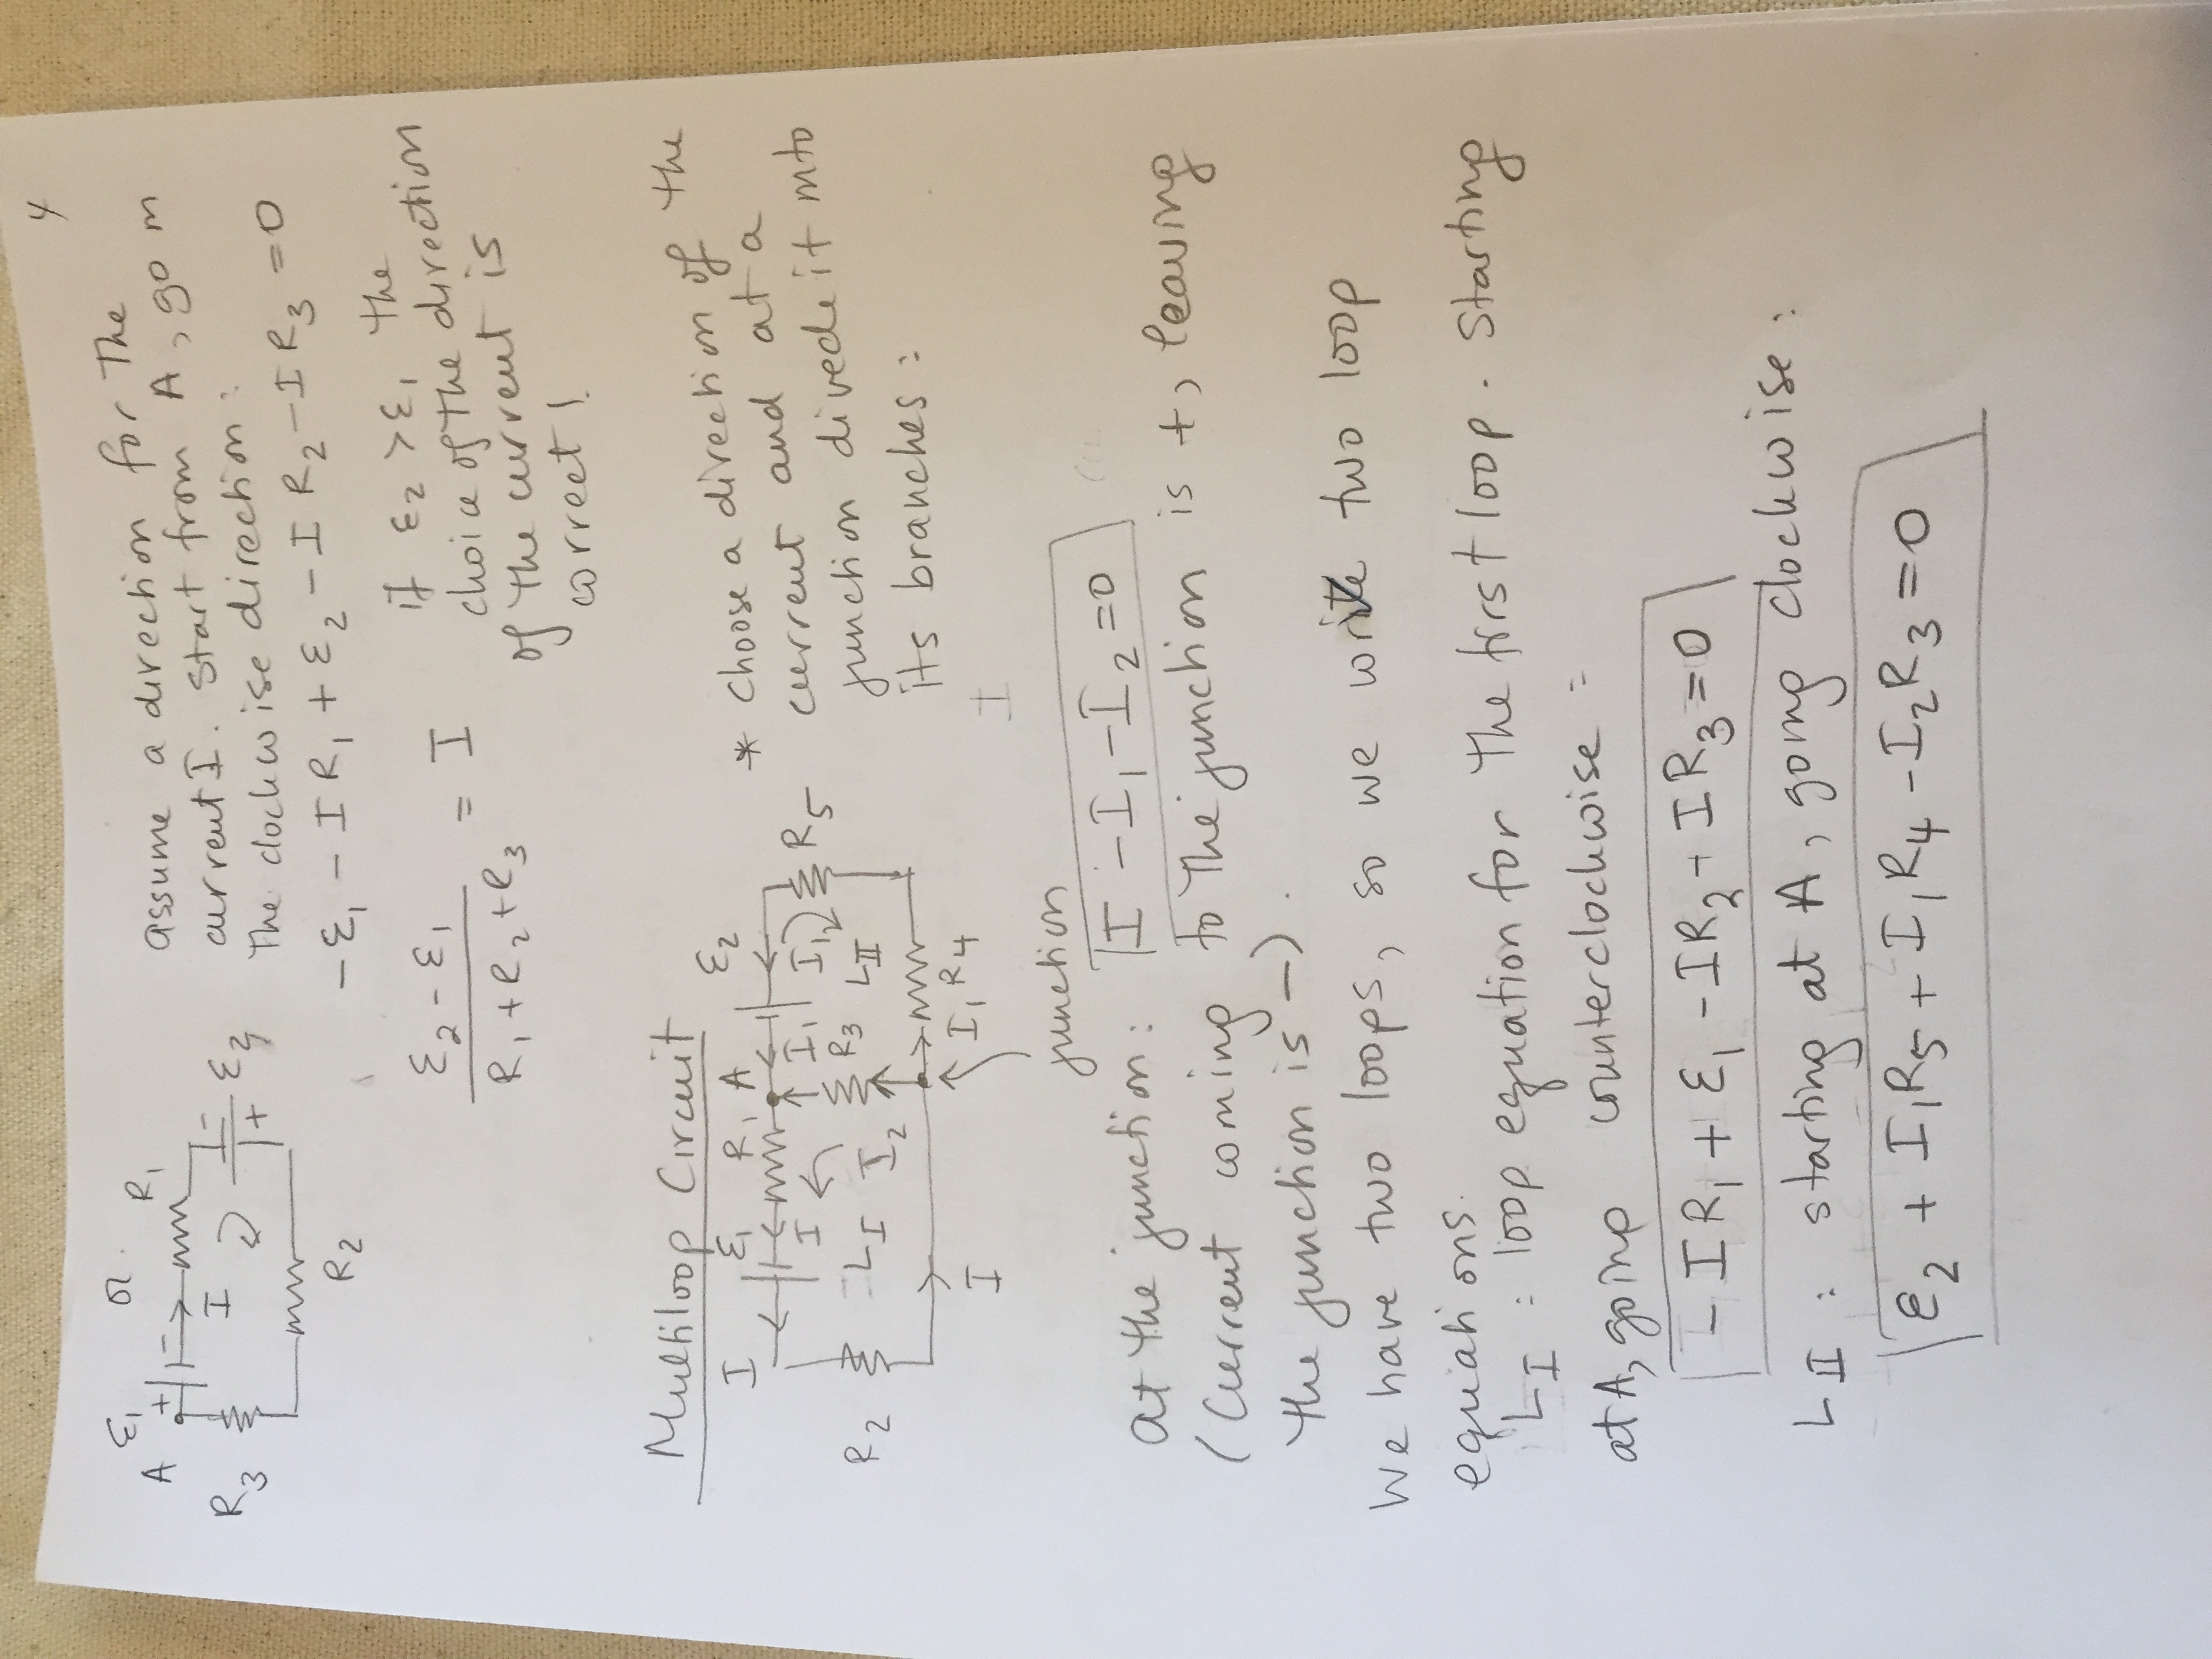 4
or
ε₁
A + - R₁
I
R₃
- ε₂
+
R₂
assume a direction for the
current I. start from A, go in
the clockwise direction:
-ε₁ - IR₁ + ε₂ - IR₂ - IR₃ = 0
ε₂ - ε₁ / R₁ + R₂ + R₃ = I
if ε₂ > ε₁ the
choice of the direction
of the current is
correct!
Multiloop Circuit
I ε₁ R₁ A ε₂
I I₁ I₁ R₅
R₂ L_I I₂ R₃ L_II
I I₁ R₄
junction
* Choose a direction of the
current and at a
junction divede it into
its branches:
I
at the junction: I - I₁ - I₂ = 0
(Current coming to the junction is +, leaving
the junction is -).
We have two loops, so we write two loop
equations.
L_I : loop equation for the first loop. Starting
at A, going counterclockwise =
- IR₁ + ε₁ - IR₂ - IR₃ = 0
L_II : starting at A, going clockwise:
ε₂ + I₁R₅ + I₁R₄ - I₂R₃ = 0